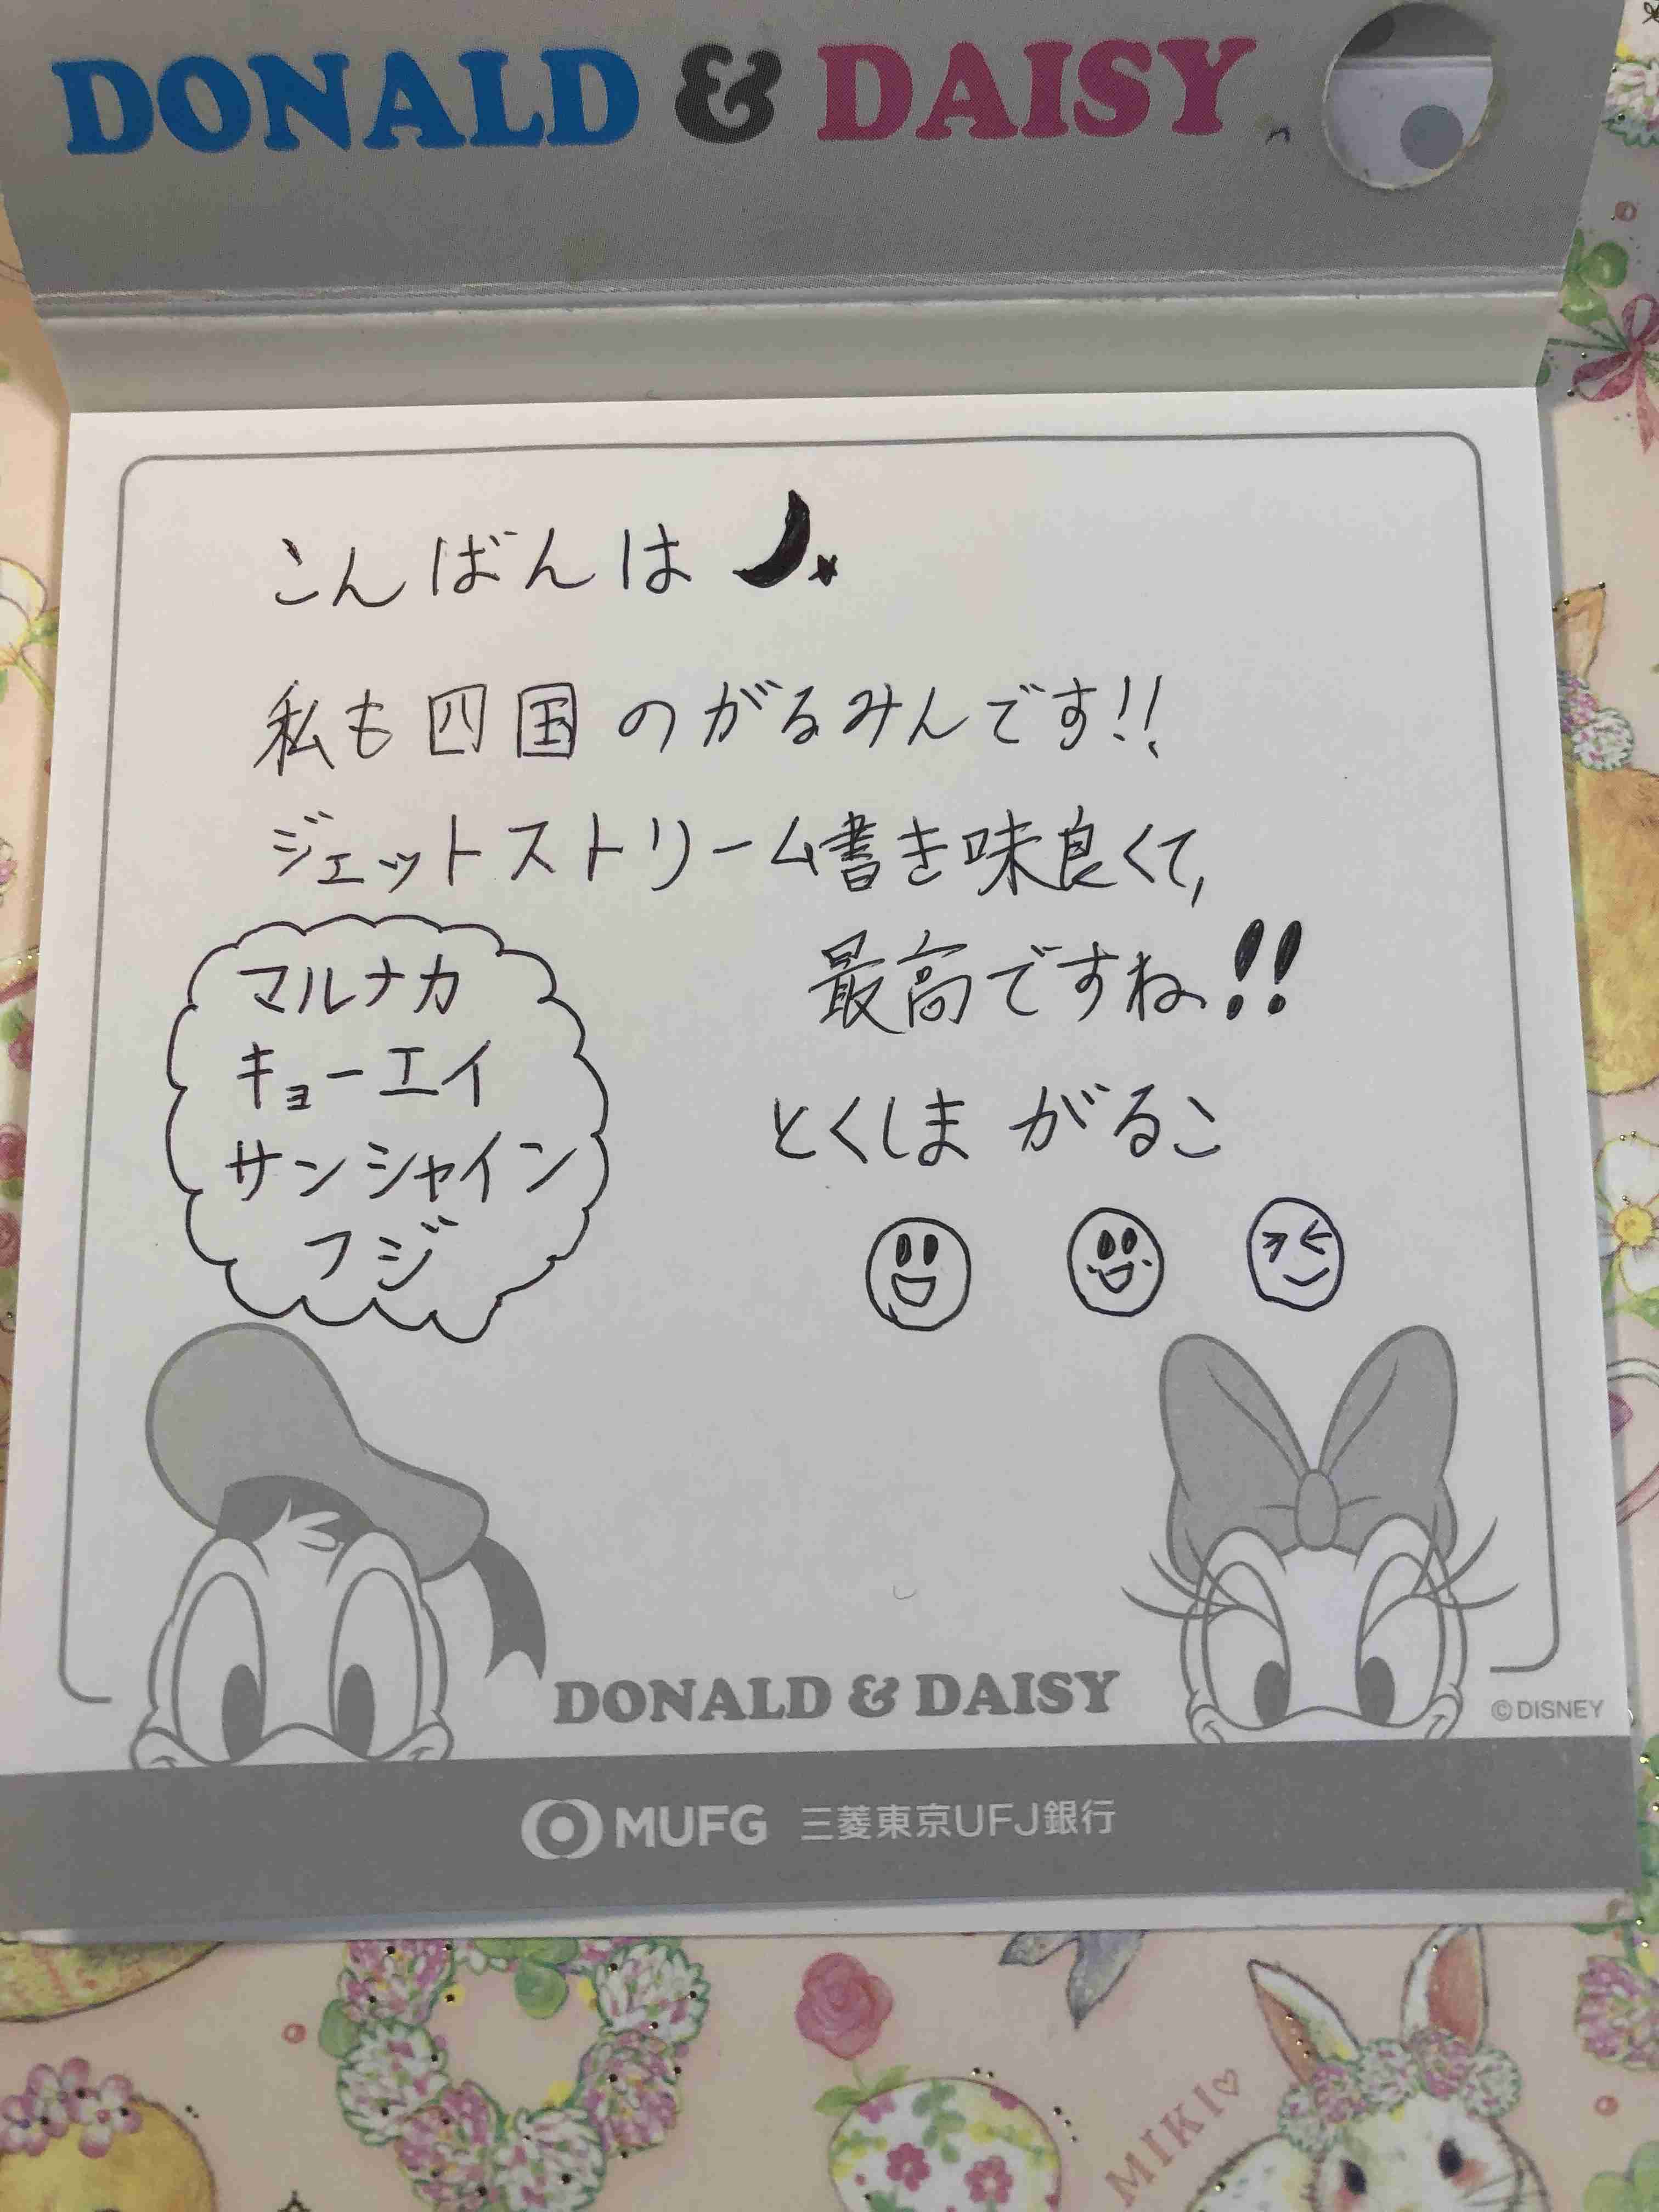 DONALD & DAISY
こんばんは
私も四国のがるみんです!!
ジェットストリーム書き味良くて、
最高ですね!!
マルナカ
キョーエイ
サンシャイン
フジ
とくしま がるこ
DONALD & DAISY
©DISNEY
MUFG 三菱東京UFJ銀行
MIKI♡